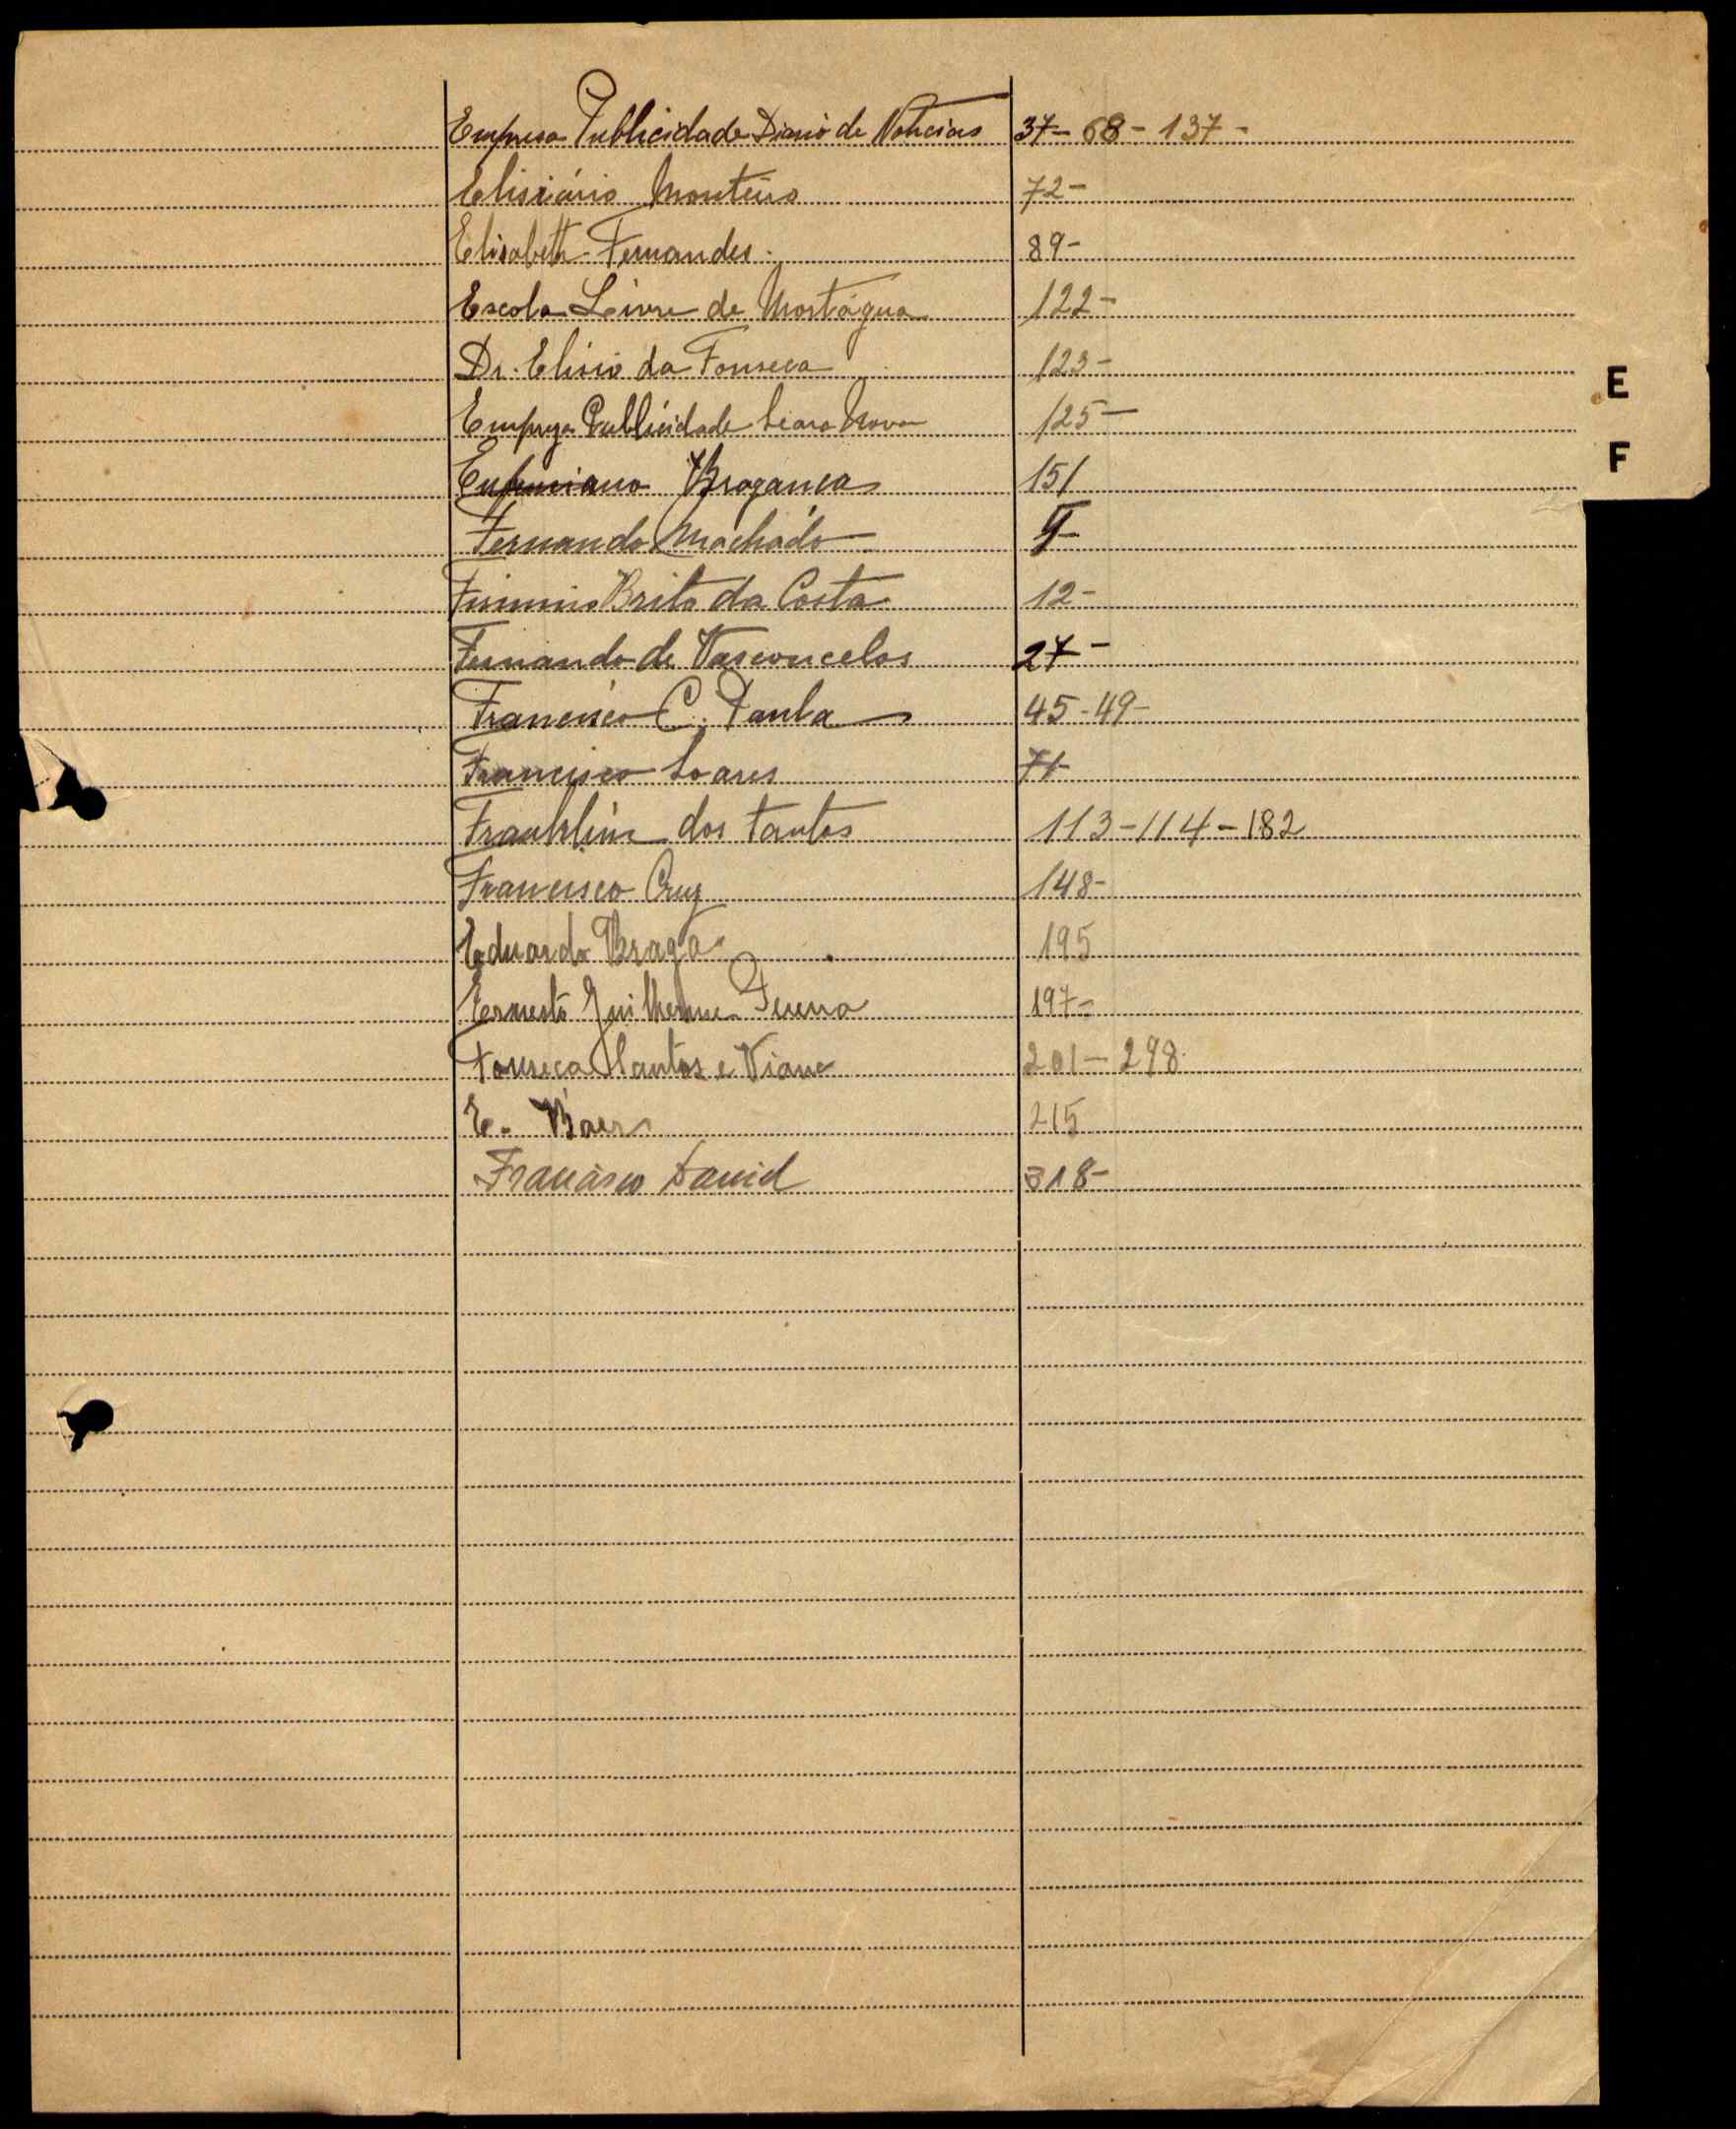 Empresa Publicidade Diario de Noticias 37- 68 - 137 -
Elisiário Monteiro 72-
Elisabeth Fernandes. 89-
Escola Livre de Mortágua 122-
Dr. Elisio da Fonseca 123-
E
Empreza Publicidade Seara Nova 125-
F
Bragança 151
Fernando Machado 9-
Firmino Brito da Costa 12-
Fernando de Vasconcelos 27-
Francisco C. Paula 45-49-
Francisco Soares 71-
Franklim dos Santos 113-114-182
Francisco Cruz 148-
Eduardo Braga 195
Ernesto Guilherme 197-
Fonseca Santos e Viana 201-298
E. Baer 215
Francisco David 318-